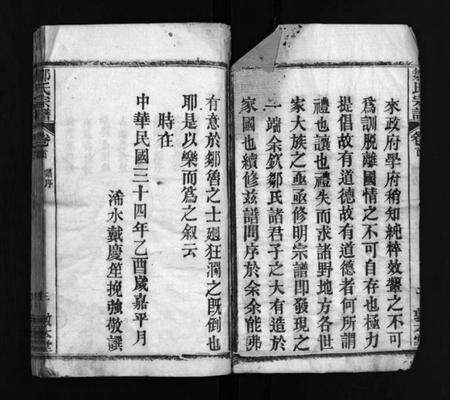 來政府學府稍知純粹效顰之不可
為訓脫離國情之不可自存也極力
提倡故有道德故有道德者何所謂
禮也讓也禮失而求諸野地方各世
家大族之亟亟修明宗譜即發現之
一端余欽鄒氏諸君子之大有造於
家國也續修玆譜問序於余余能弗
有意於鄒魯之士廻狂瀾之既倒也
耶是以樂而為之叙云
時在
中華民國三十四年乙酉歲嘉平月
浠水戴慶笙挽強敬譔
鄒氏宗譜
卷首